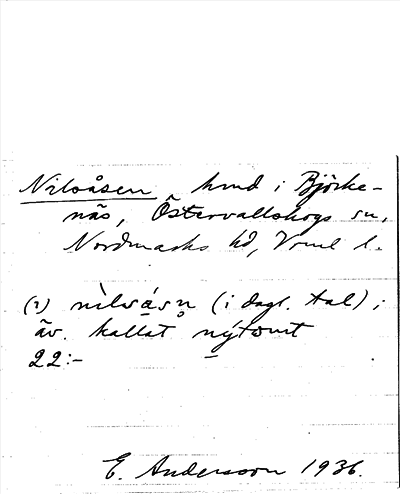 Nilsåsen, hmd i Björke-
näs, Östervallskogs sn,
Nordmarks hd, Vrml l.
(1) nìlsás̥n (i dagl. tal);
äv. kallat nýtomt
22:-
E. Andersson 1936.